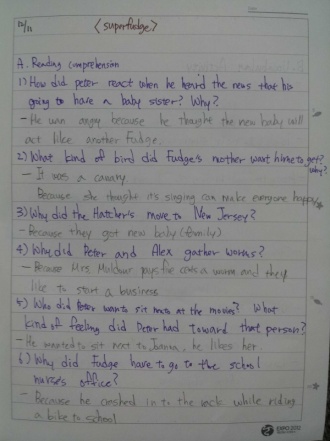 12/11
<superfudge>
A. Reading comprehension
1) How did peter react when he heard the news that his
going to have a baby sister? Why?
- He was angry because he thought the new baby will
act like another Fudge.
2) What kind of bird did Fudge's mother want him to get?
why?
- It was a canary
Because she thought it's singing can make everyone happy
3) Why did the Hatcher's move to New Jersey?
- Because they got new baby (family)
4) Why did Peter and Alex gather worms?
- Because Mrs. Muldour pays 5 cents a worm and they
like to start a business
5) Who did Peter want to sit next to at the movies? What
kind of feeling did Peter had toward that person?
- He wanted to sit next to Joanna, he likes her.
6) Why did Fudge have to go to the school
nurse's office?
- Because he crashed in to the rack while riding
a bike to school
EXPO 2012